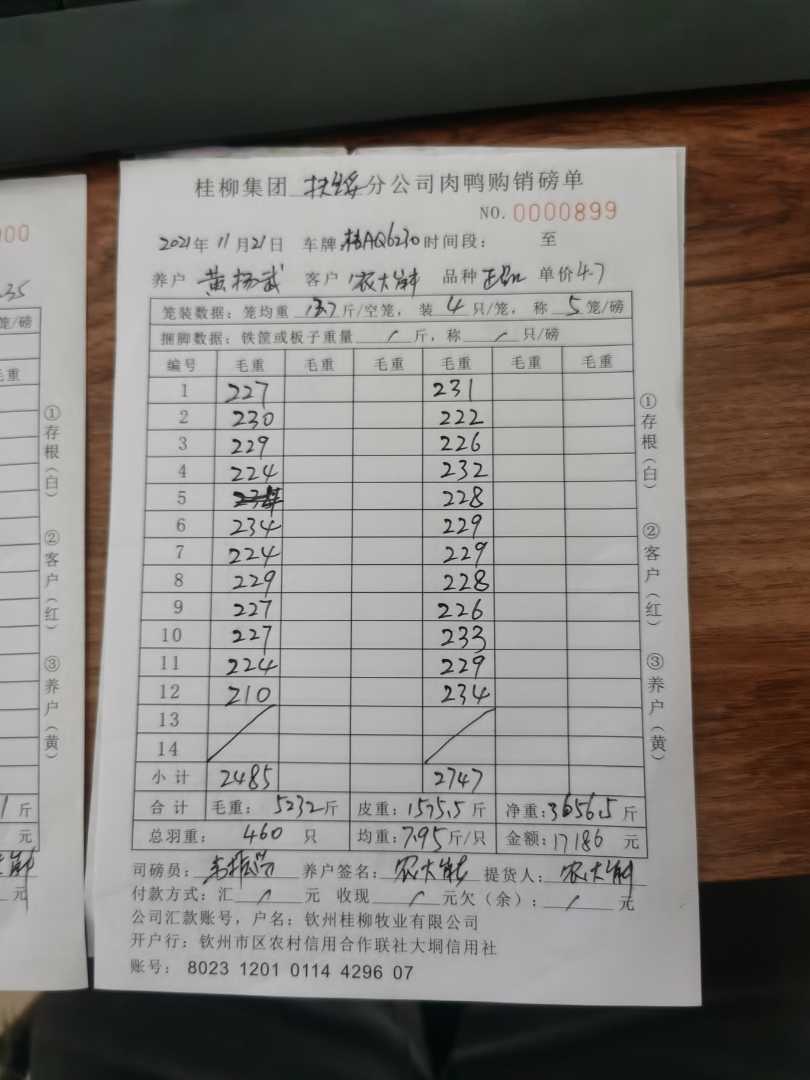 桂柳集团 扶绥 分公司肉鸭购销磅单
NO. 0000899
2021年 11月21日 车牌:桂AQ6230 时间段: 至
养户 黄杨武 客户 农大 品种 单价4.7
笼装数据:笼均重 13.7 斤/空笼,装 4 只/笼,称 5 笼/磅
捆脚数据:铁筐或板子重量 / 斤,称 / 只/磅
编号 毛重 毛重 毛重 毛重 毛重 毛重
1 227 231
2 230 222
3 229 226
4 224 232
5 228
6 234 229
7 224 229
8 229 228
9 227 226
10 227 233
11 224 229
12 210 234
13
14
小计 2485 2747
合计 毛重: 5232斤 皮重:1575.5 斤 净重:3656.5 斤
总羽重: 460 只 均重:7.95斤/只 金额:17186 元
司磅员: 养户签名:农大 提货人:农大
付款方式:汇 / 元 收现 / 元欠(余): / 元
公司汇款账号,户名:钦州桂柳牧业有限公司
开户行:钦州市区农村信用合作联社大垌信用社
账号: 8023 1201 0114 4296 07
①存根(白) ②客户(红) ③养户(黄)
000
35
笼/磅
毛重
①存根(白) ②客户(红) ③养户(黄)
1斤
元
元